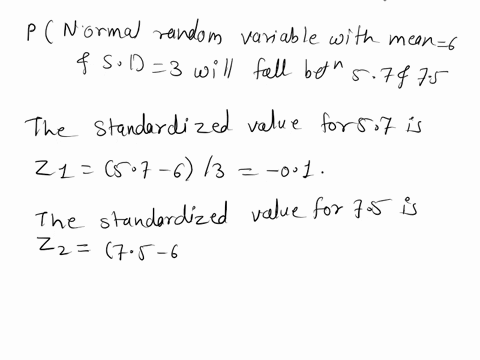 P ( Normal random variable with mean=6
& S.D=3 will fall betn 5.7 & 7.5
The standardized value for 5.7 is
Z1 = (5.7-6) /3 = -0.1.
The standardized value for 7.5 is
Z2 = (7.5-6